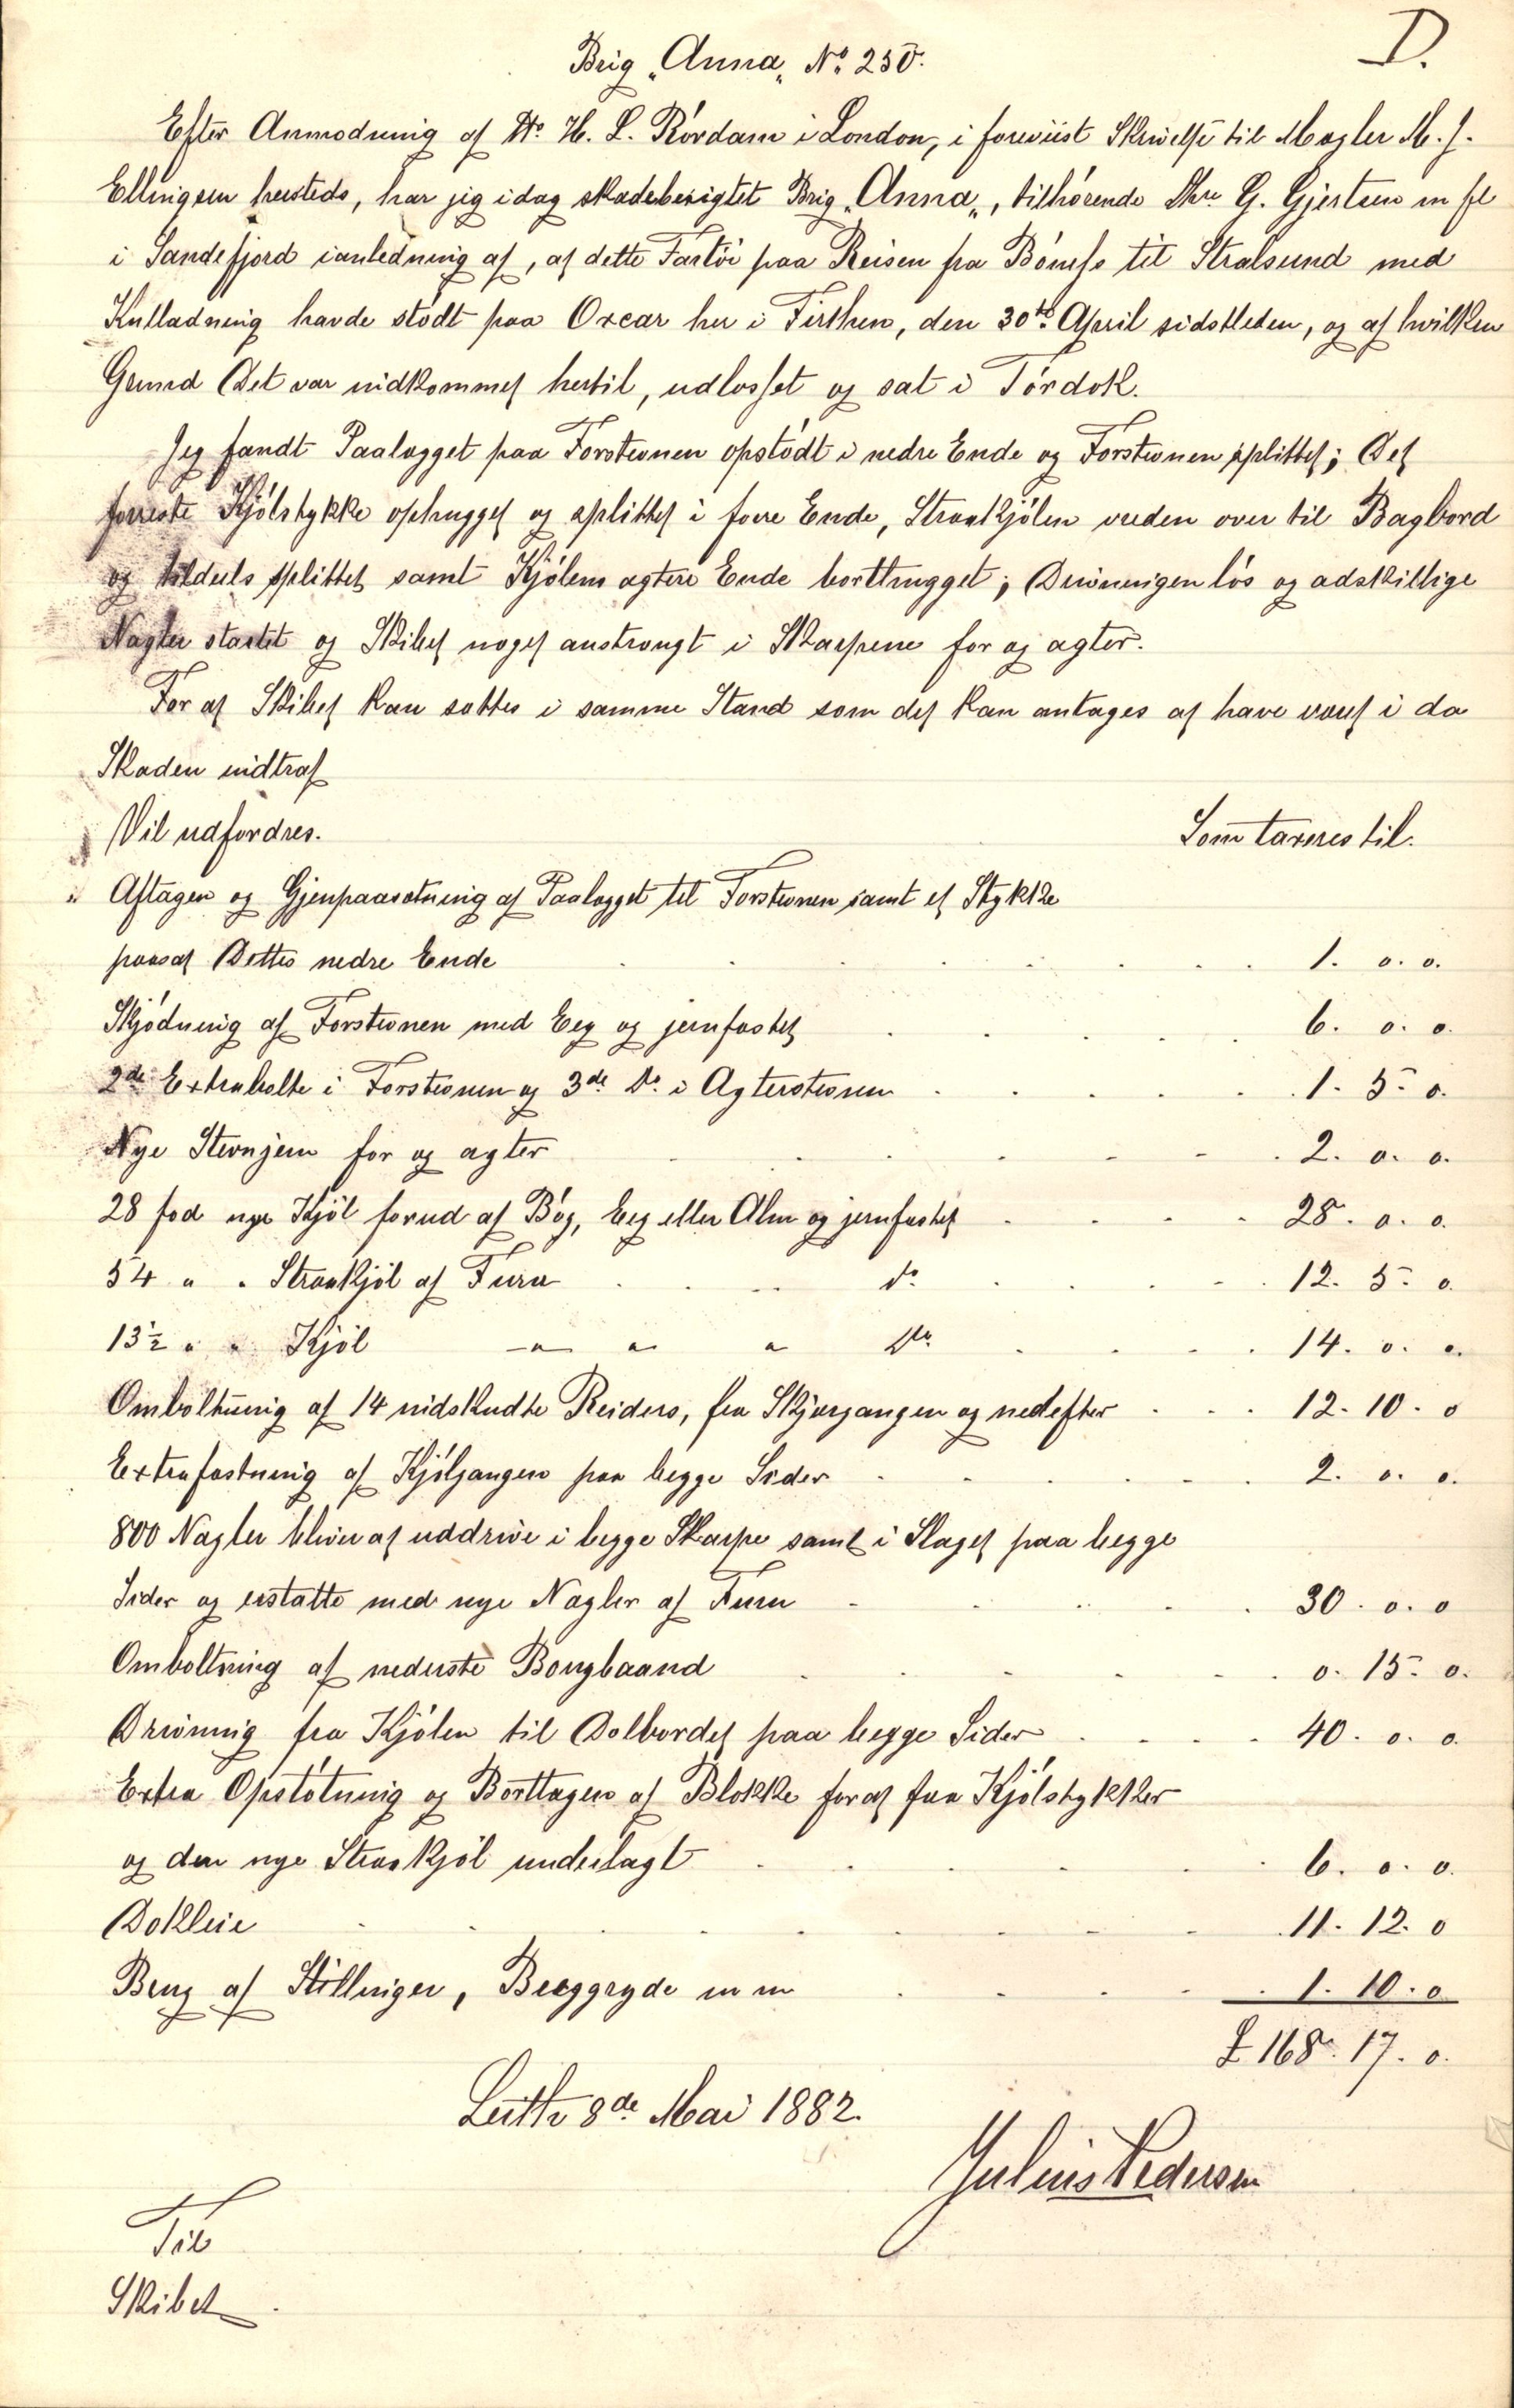 D.
Brig „Anna„ No 250.
Efter Anmodning af Hr. H. L. Rördam i London, i foreviist Skrivelse til Mægler M. J.
Ellingsen hersteds, har jeg idag skadebesigtet Brig „Anna„, tilhörende Skr. G. Gjertsen m fl
i Sandefjord ianledning af, at dette Fartöi paa Reisen fra Böness til Stralsund med
Kulladning havde stödt paa Oxcar her i Firthen, den 30te April sidstleden, og af hvilken
Grund Det var indkommet hertil, udlosset og sat i Tördok.
Jeg fandt Paalægget paa Forstevnen opstödt i nedre Ende og Forstevnen splittet; Det
forreste Kjölstykke ophugget og splittet i forre Ende, Straakjölen vreden over til Bagbord
og tildeels splittet samt Kjölens agtere Ende borthugget; Drivningen lös og adskillige
Nagler startet og Skibet noget anstrengt i Skarpene for og agter.
For at Skibet kan sættes i samme Stand som det kan antages at have været i da
Skaden indtraf
Vil udfordres. Som taxeres til.
„ Aftagen og Gjenpaasætning af Paalægget til Forstevnen samt et Stykke
paasat Dettes nedre Ende 1. 0. 0.
Skjödning af Forstevnen med Eeg og jernfastet 6. 0. 0.
2de Extrabolte i Forstevnen og 3de Do i Agterstevnen 1. 5. 0.
Nye Stevnjern for og agter 2. 0. 0.
28 fod nye Kjöl forud af Bög, Eeg eller Alm og jernfastet 28. 0. 0.
54 " " Straakjöl af Furu do 12. 5. 0.
13½ " " Kjöl - " " " Do 14. 0. 0.
Omboltning af 14 nidskudte Reiders, fra Skjærgangen og nedefter 12. 10. 0
Extrafastning af Kjölgangen paa begge Sider 2. 0. 0.
800 Nagler bliver at uddrive i begge Skarpe samt i Slaget paa begge
Sider og erstatte med nye Nagler af Furu 30. 0. 0
Omboltning af nederste Bougbaand 0. 15. 0.
Drivning fra Kjölen til Dolbordet paa begge Sider 40. 0. 0.
Extra Opstötning og Borttagen af Blokke for at faa Kjölstykker
og den nye Straakjöl underlagt 6. 0. 0.
Dokleie 11. 12. 0
Brug af Stillinger, Beggryde m m 1. 10. 0
£ 168. 17. 0.
Leith 8de Mai 1882.
Julius Pedersen
Til
Skibet.